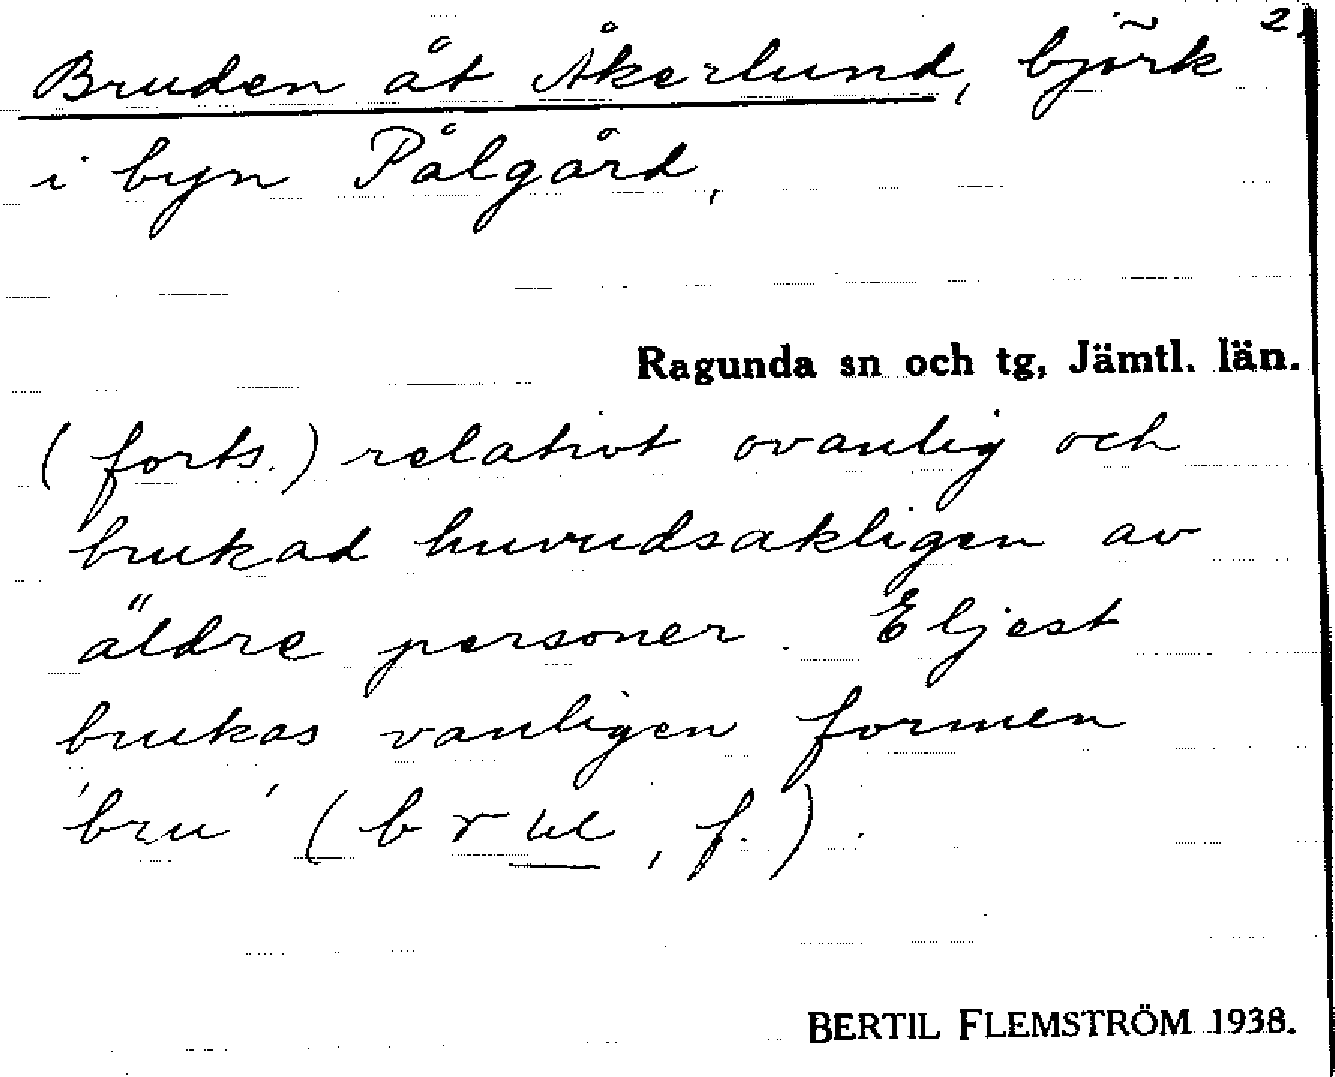 2.
Bruden åt Åkerlund, björk
i byn Pålgård.
Ragunda sn och tg, Jämtl. län.
(forts.) relativt ovanlig och
brukad huvudsakligen av
äldre personer. Eljest
brukas vanligen formen
'bru' (b r ul, f.).
BERTIL FLEMSTRÖM 1938.